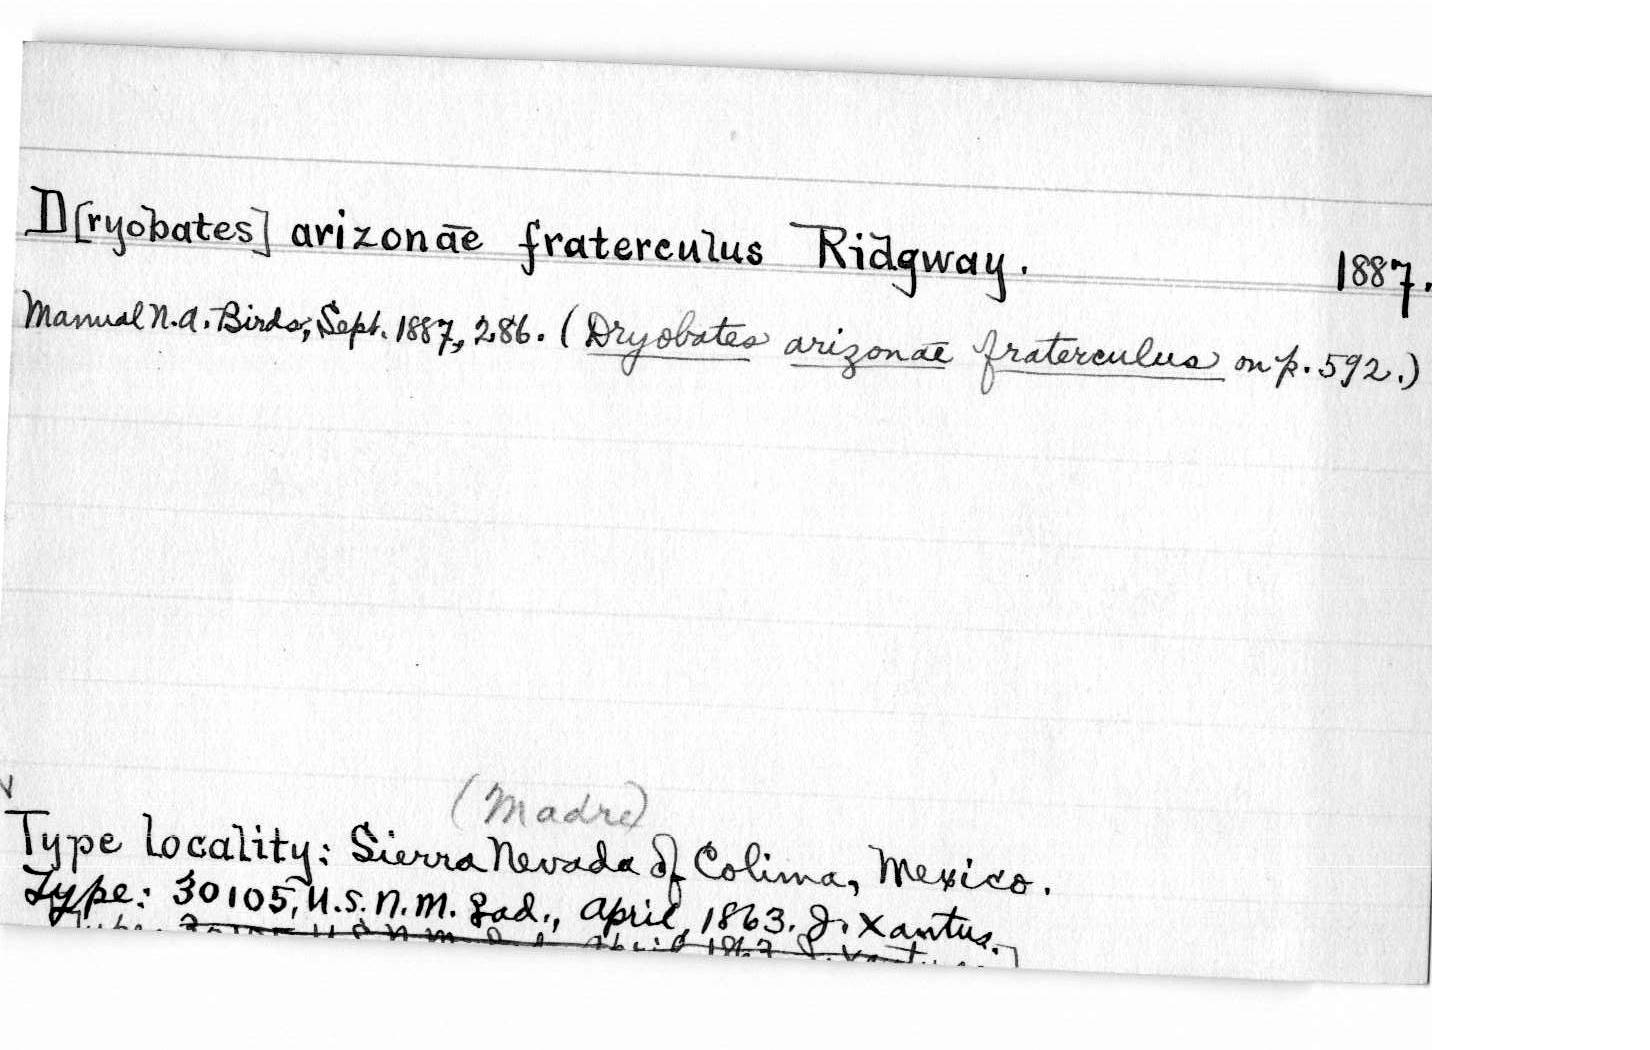 D[ryobates] arizonae fraterculus Ridgway. 1887.
Manual N.A. Birds, Sept. 1887, 286. (Dryobates arizonae fraterculus on p. 592.)
(Madre)
Type locality: Sierra Nevada of Colima, Mexico.
Type: 30105, U.S.N.M. ad., April, 1863. J. Xantus.